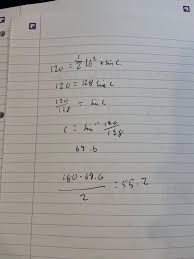 120 = 1/2 16² × sin C
120 = 128 sin C
120/128 = sin C
C = sin⁻¹ 120/128
69.6
180 - 69.6 / 2 = 55.2